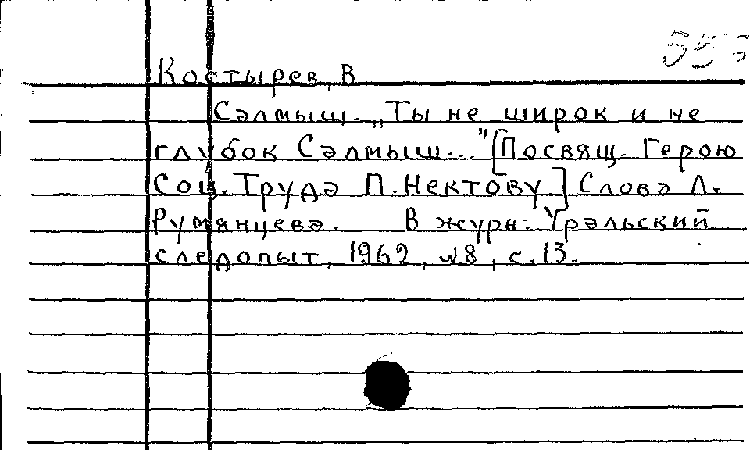 Костырев, В
Салмыш. „Ты не широк и не
глубок Салмыш..." [Посвящ. Герою
Соц. Труда П. Нектову] Слова Л.
Румянцева. В журн. Уральский
следопыт, 1962, №8, с. 13.